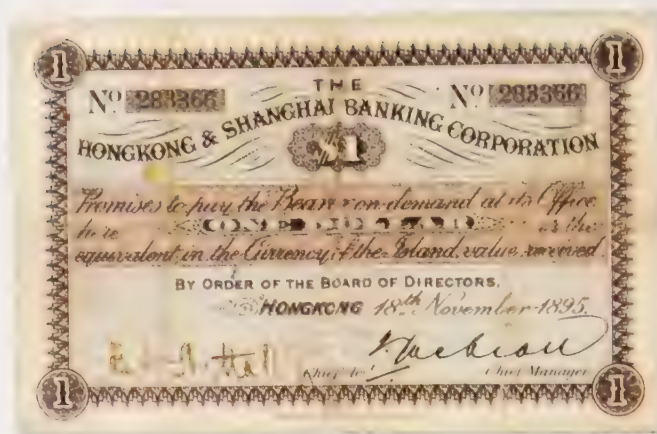 1 1
THE
Nº 283366 Nº 283366
HONGKONG & SHANGHAI BANKING CORPORATION
$1
Promises to pay the Bearer on demand at its Office
here ONE DOLLAR or the
equivalent in the Currency of the Island, value received.
BY ORDER OF THE BOARD OF DIRECTORS,
HONGKONG 18th November 1895.
Chief Manager
1 1